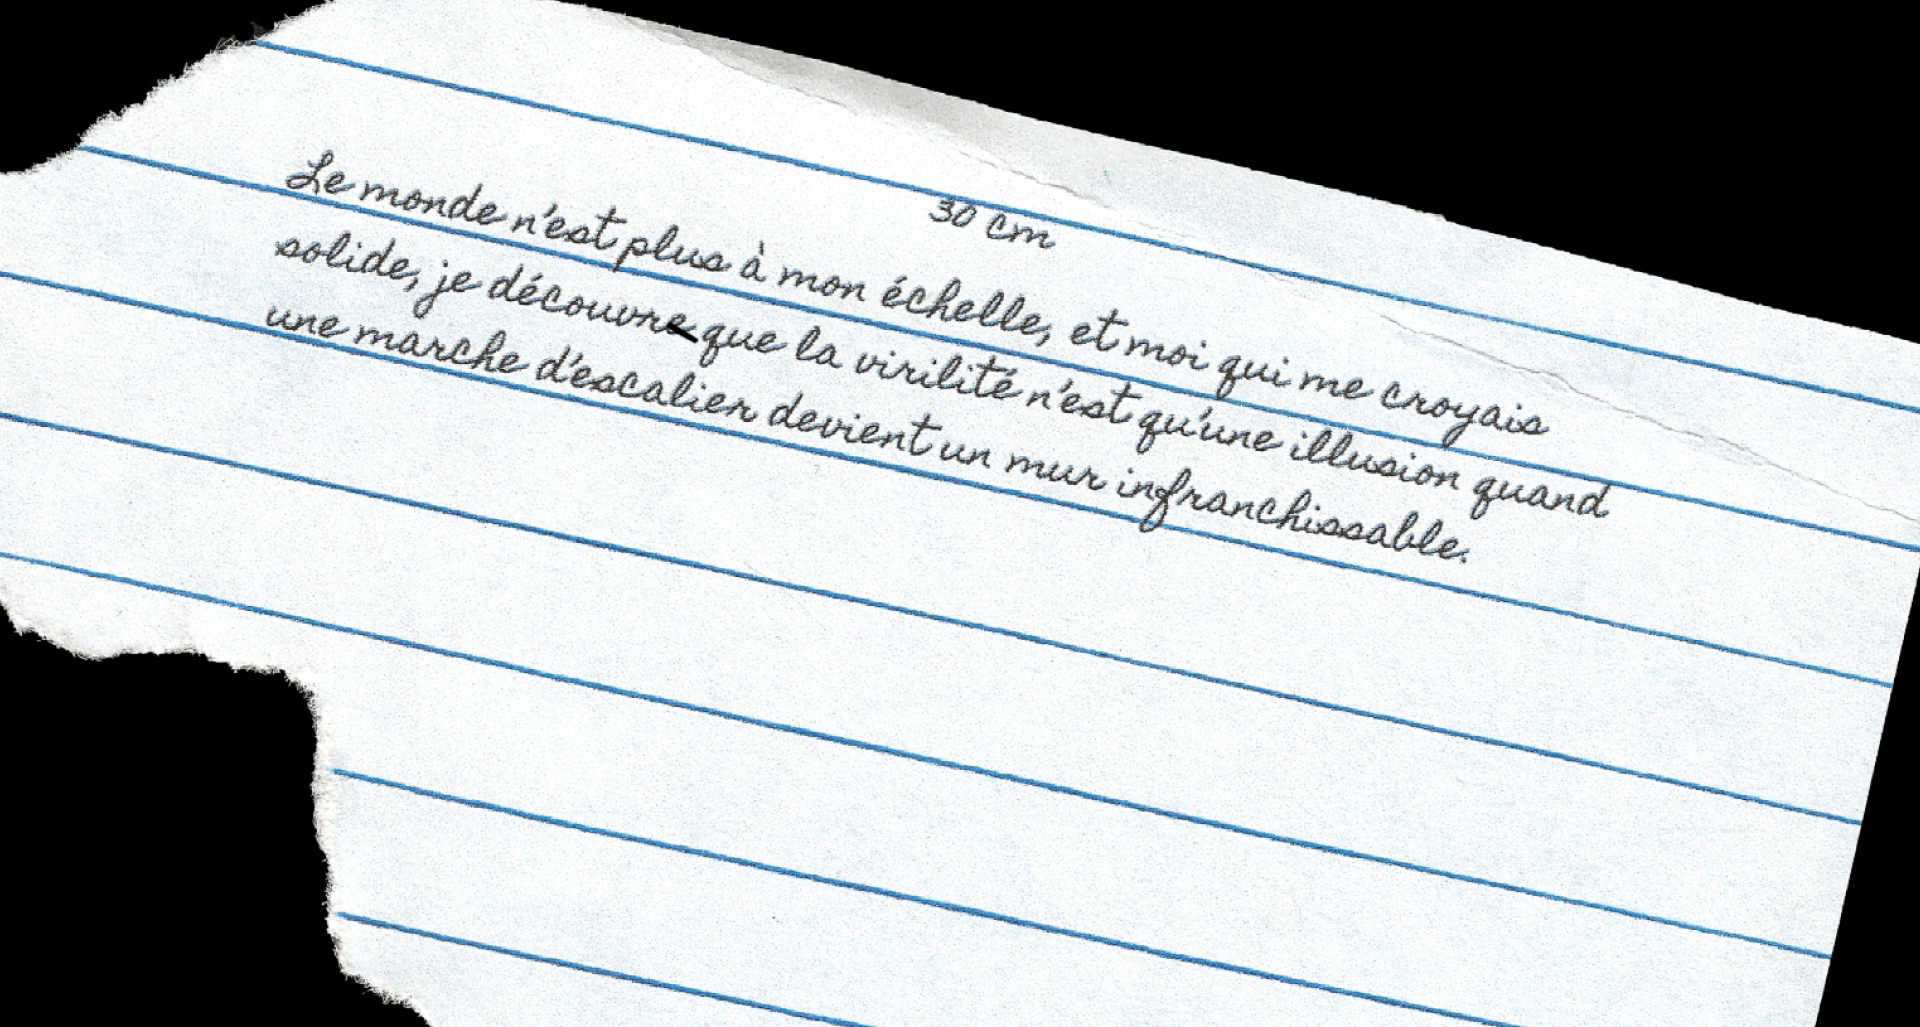 30 cm
Le monde n'est plus à mon échelle, et moi qui me croyais
solide, je découvre que la virilité n'est qu'une illusion quand
une marche d'escalier devient un mur infranchissable.